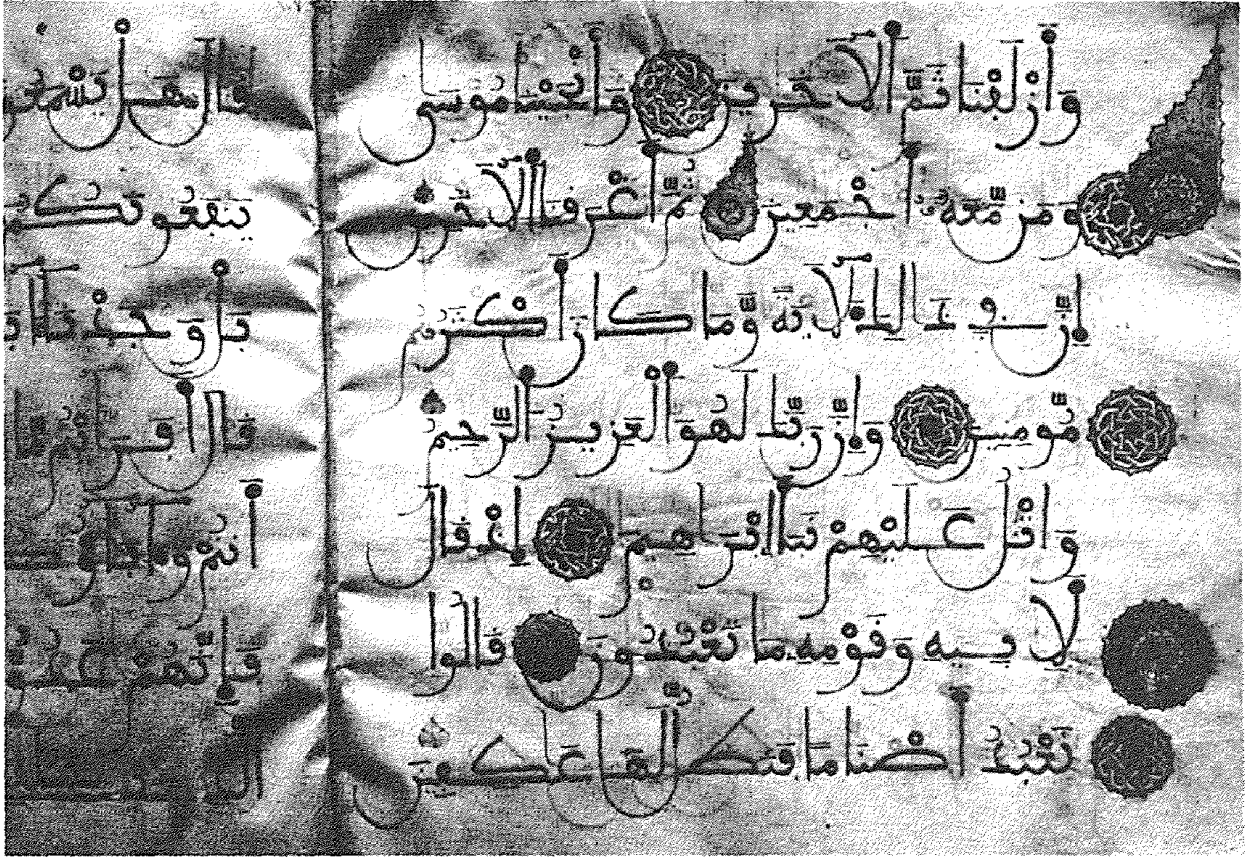 وَأَزْلَفْنَا ثَمَّ اَلَاخَرِينَ وَأَنجَيْنَا مُوسَى
وَمَن مَّعَهُ أَجْمَعِينَ ثُمَّ أَغْرَقْنَا اَلَاخَرِينَ
إِنَّ فِي ذَلِكَ لَايَةً وَمَا كَانَ أَكْثَرُهُم
مُّومِنِينَ وَإِنَّ رَبَّكَ لَهُوَ اَلْعَزِيزُ اُلرَّحِيمُ
وَاتْلُ عَلَيْهِمْ نَبَأَ اِبْرَاهِيمَ إِذْ قَالَ
لِأَبِيهِ وَقَوْمِهِ مَا تَعْبُدُونَ قَالُوا
نَعْبُدُ أَصْنَامًا فَنَظَلُّ لَهَا عَكِفِينَ
قَالَ هَلْ
يَنفَعُونَكُم
بَلْ وَجَدْنَا
قَالَ أَفَرَأَيْتُم مَّا
أَنتُمْ
فَإِنَّهُمْ عَدُوٌّ